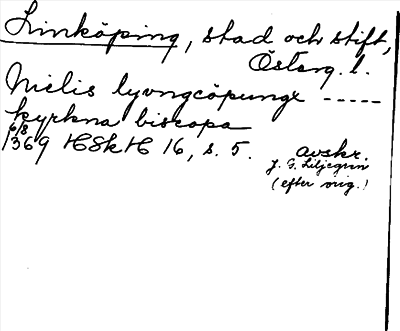 Linköping, stad och stift,
Österg. l.
Nielis lyongcöpunge -----
kyrkna biscopa
6/8
1369 HSkH 16, s. 5. avskr.
J. G. Liljegren
(efter orig.)